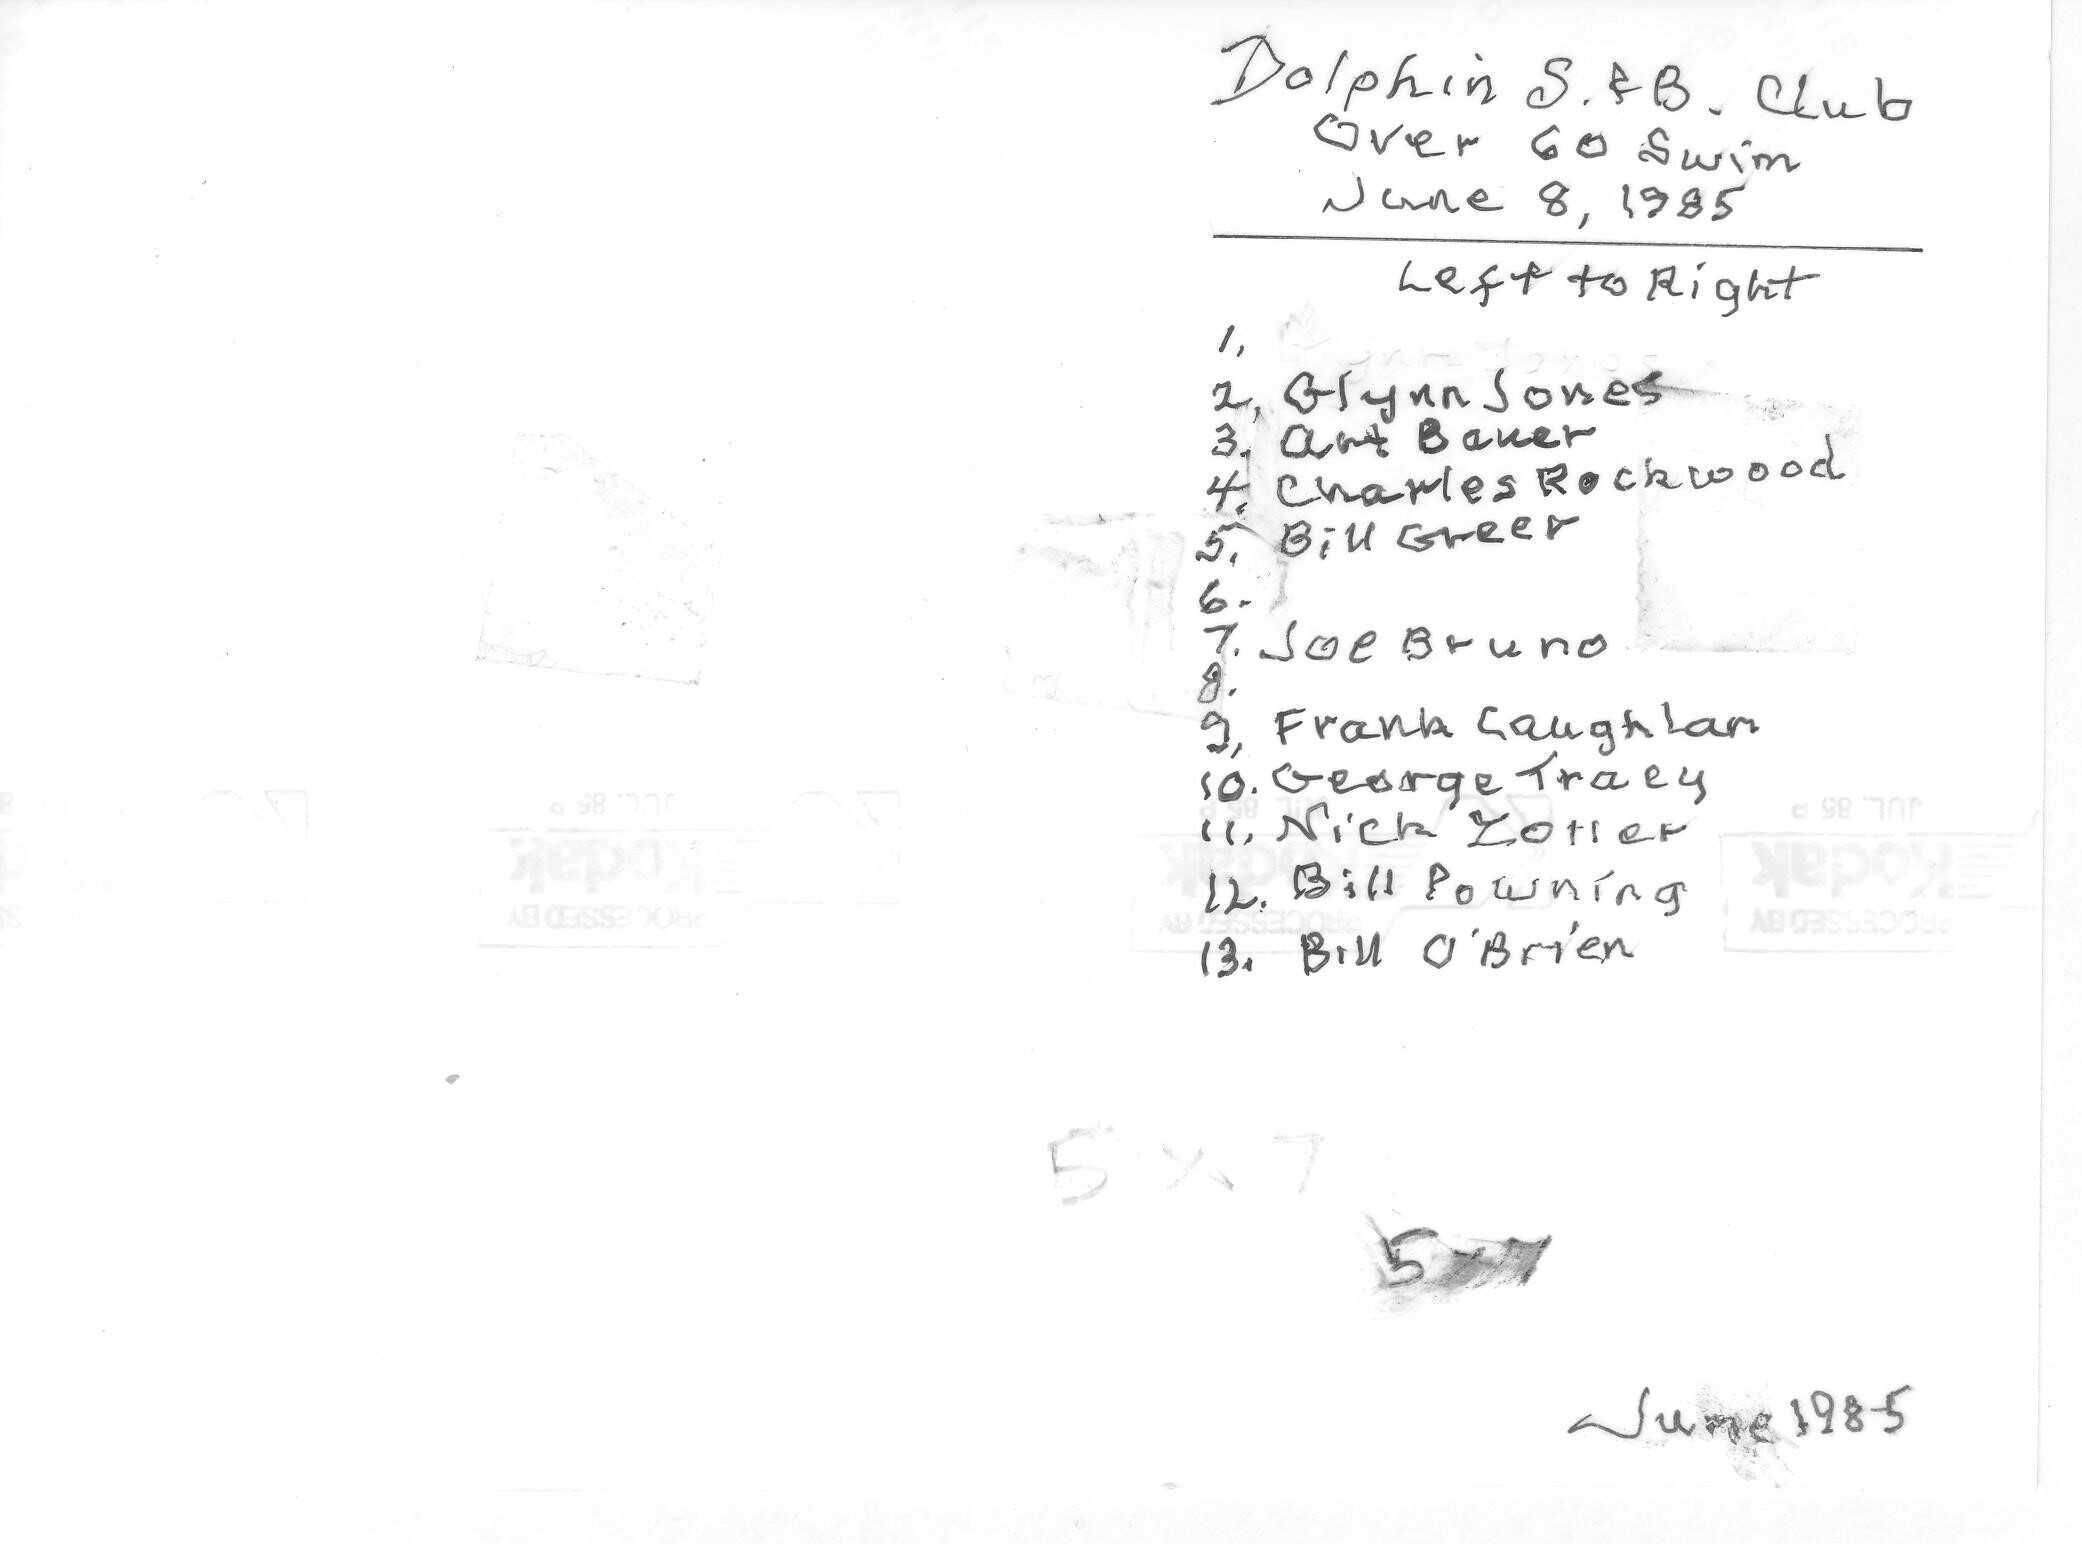 Dolphin S. & B. Club
Over 60 Swim
June 8, 1985
Left to Right
1.
2. Glynn Jones
3. Art Bauer
4. Charles Rockwood
5. Bill Greer
6.
7. Joe Bruno
8.
9. Frank Caughlan
10. George Tracy
11. Nick Zoller
12. Bill Powning
13. Bill O'Brien
JUL. 85 P
Kodak
PROCESSED BY
5 x 7
5 x 7
June 1985